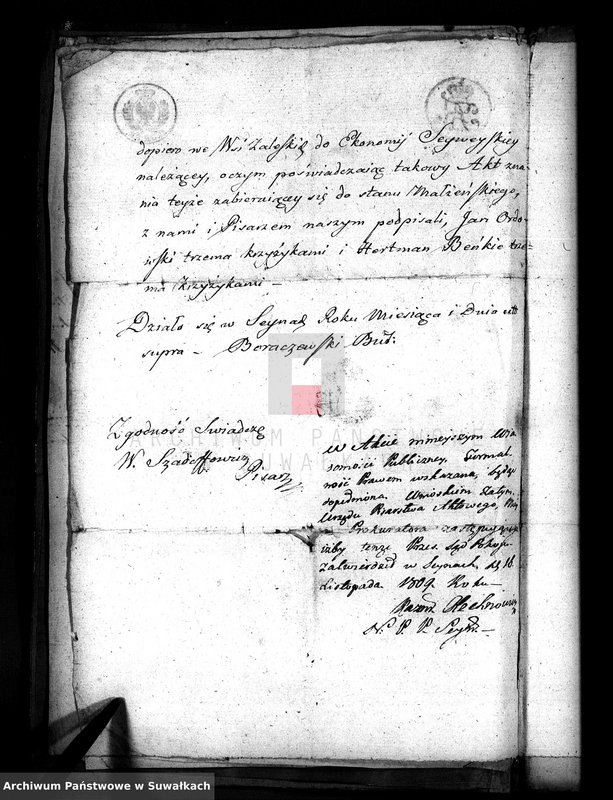 dopiero we Wsi Zaleskię do Ekonomij Seyweyskiey
należącey, oczym poświadczaiąc takowy Akt zna-
nia teyże zabieraiącey się do stanu Małżeńskiego,
z nami i Pisarzem naszym podpisali, Jan Ordo-
wski trzema krzyżykami i Hertman Beńkie trze-
ma krzyżykami –
Działo się w Seynach Roku Miesiąca i Dnia ut
supra – Boraczewski
Zgodność Swiadczę
W. Pisarz
w Akcie ninieyszym Wia-
domości Publiczney, formal-
ność Prawem wskazana, będąc
dopełniona, Wnioskiem
Urzędu Pisarstwa Aktowego,
Prokuratora zastępuiącego
iżby tenże Przez Sąd Pokoju
zatwierdzid w Seynach, d. 16
Listopada 1809 Roku –
N. P. P. Seyń. –
ARCHIWUM PAŃSTWOWE
W SUWAŁKACH
Archiwum Państwowe w Suwałkach